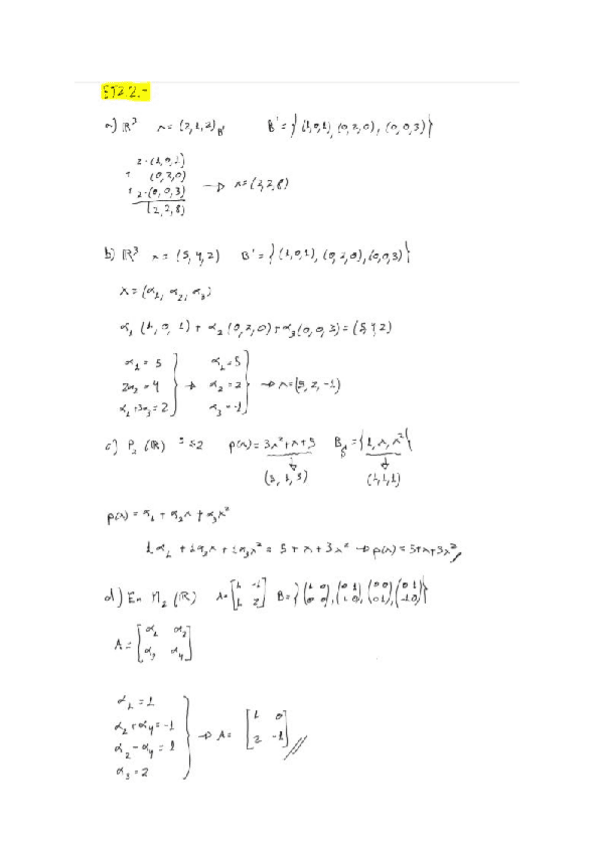 EJ2 2.-
a) ℝ³ x = (2,1,2)B' B' = {(1,0,1), (0,2,0), (0,0,3)}
2·(1,0,1)
+ (0,2,0)
+ 2·(0,0,3) → x=(2,2,8)
(2,2,8)
b) ℝ³ x = (5,4,2) B' = {(1,0,1), (0,2,0), (0,0,3)}
x = (α₁, α₂, α₃)
α₁ (1,0,1) + α₂ (0,2,0) + α₃ (0,0,3) = (5,4,2)
α₁ = 5 α₁ = 5
2α₂ = 4 → α₂ = 2 → x = (5, 2, -1)
α₁ + 3α₃ = 2 α₃ = -1
c) P₂ (ℝ) p(x) = 3x² + x + 5 B = {1, x, x²}
(1,1,1)
p(x) = α₁ + α₂x + α₃x²
1α₁ + 1α₂x + 1α₃x² = 5 + x + 3x² → p(x) = 5+x+3x²
d) En M₂ (ℝ) A = [1 -1; 1 2] B = {(1 0; 0 0), (0 1; 1 0), (0 0; 0 1), (0 1; -1 0)}
A = [α₁ α₂; α₃ α₄]
α₁ = 1
α₂ + α₄ = -1
α₂ - α₄ = 1 → A = [1 0; 2 -1]
α₃ = 2